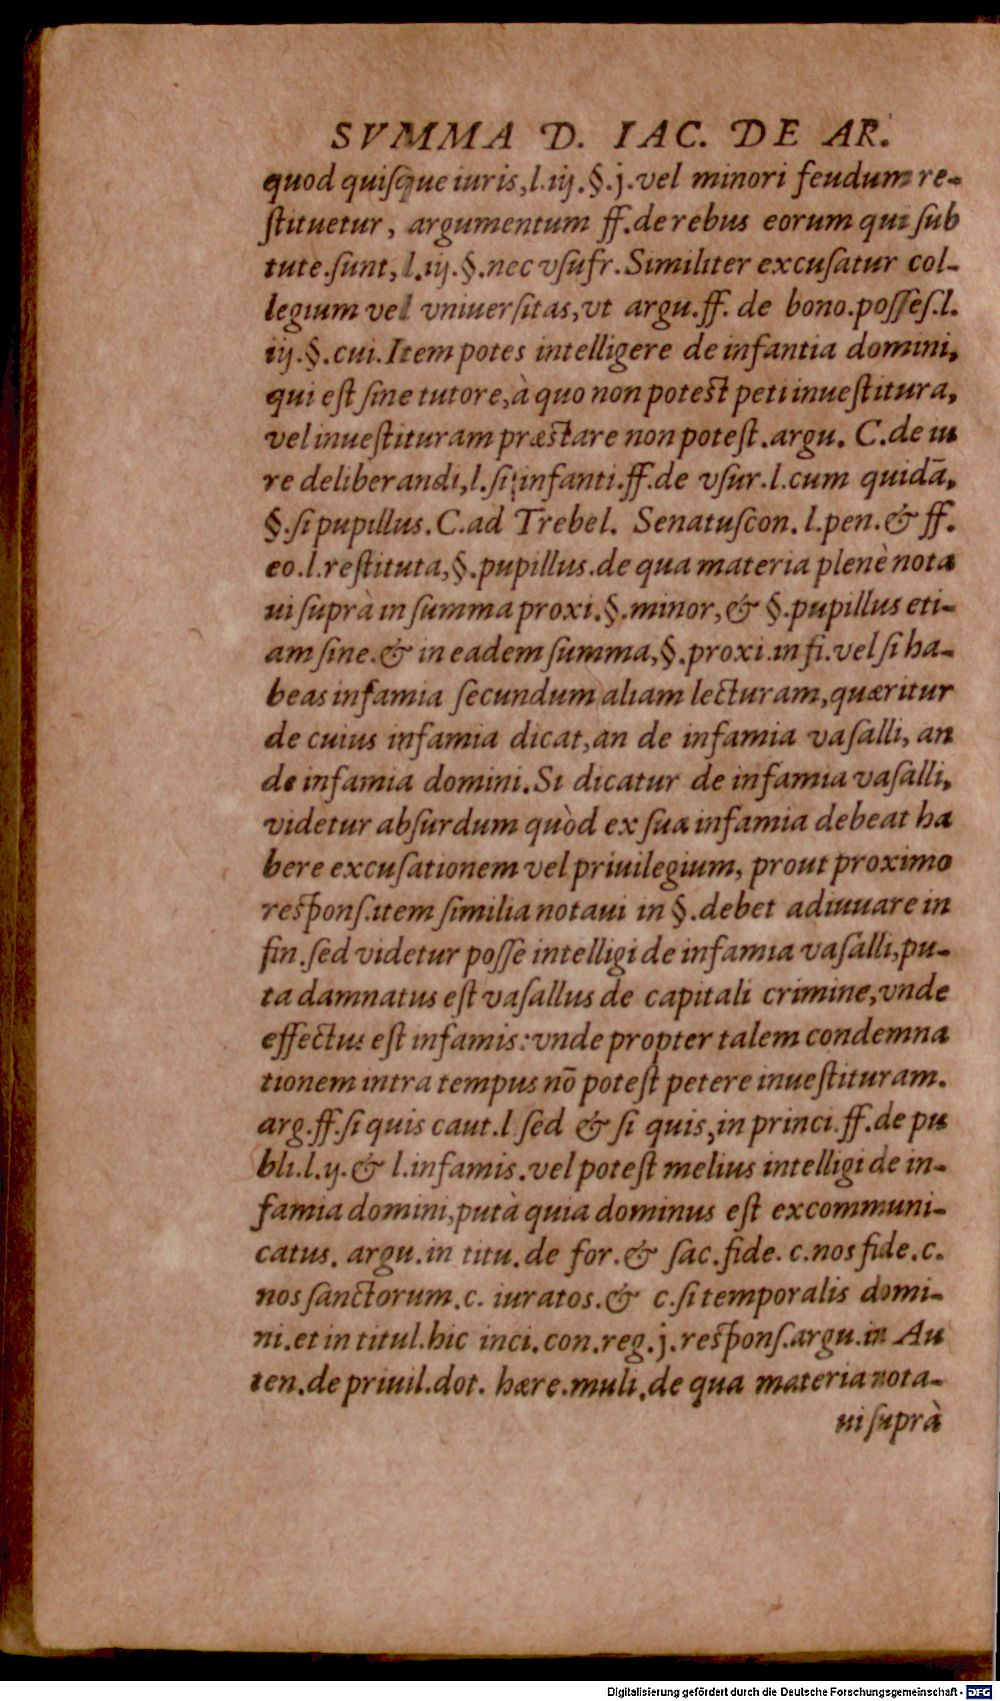 SVMMA D. IAC. DE AR.
quod quisque iuris, l.iij.§.j.vel minori feudum re-
stituetur, argumentum ff.de rebus eorum qui sub
tute.sunt, l.iij.§.nec vsufr. Similiter excusatur col-
legium vel vniuersitas, vt argu.ff. de bono.posses.l.
iij.§.cui. Item potes intelligere de infantia domini,
qui est sine tutore, à quo non potest peti inuestitura,
vel inuestituram præstare non potest. argu. C.de iu
re deliberandi, l.si infanti.ff.de vsur.l.cum quidā,
§.si pupillus. C.ad Trebel. Senatuscon. l.pen.& ff.
eo.l.restituta,§.pupillus.de qua materia plenè nota
ui suprà in summa proxi.§.minor,& §.pupillus eti-
am sine.& in eadem summa,§.proxi.in fi.vel si ha-
beas infamia secundum aliam lecturam, quæritur
de cuius infamia dicat, an de infamia vasalli, an
de infamia domini. Si dicatur de infamia vasalli,
videtur absurdum quòd ex sua infamia debeat ha
bere excusationem vel priuilegium, prout proximo
respons.item similia notaui in §.debet adiuuare in
fin.sed videtur posse intelligi de infamia vasalli, pu-
ta damnatus est vasallus de capitali crimine, vnde
effectus est infamis: vnde propter talem condemna
tionem intra tempus nō potest petere inuestituram.
arg.ff.si quis caut.l.sed & si quis, in princi.ff.de pu
bli.l.ij.& l.infamis.vel potest melius intelligi de in-
famia domini, putà quia dominus est excommuni-
catus. argu.in titu.de for.& sac.fide. c.nos fide.c.
nos sanctorum.c. iuratos.& c.si temporalis domi-
ni.et in titul.hic inci.con.reg.j.respons.argu.in Au
ten.de priuil.dot. hære.muli.de qua materia nota-
ui suprà
Digitalisierung gefördert durch die Deutsche Forschungsgemeinschaft - DFG